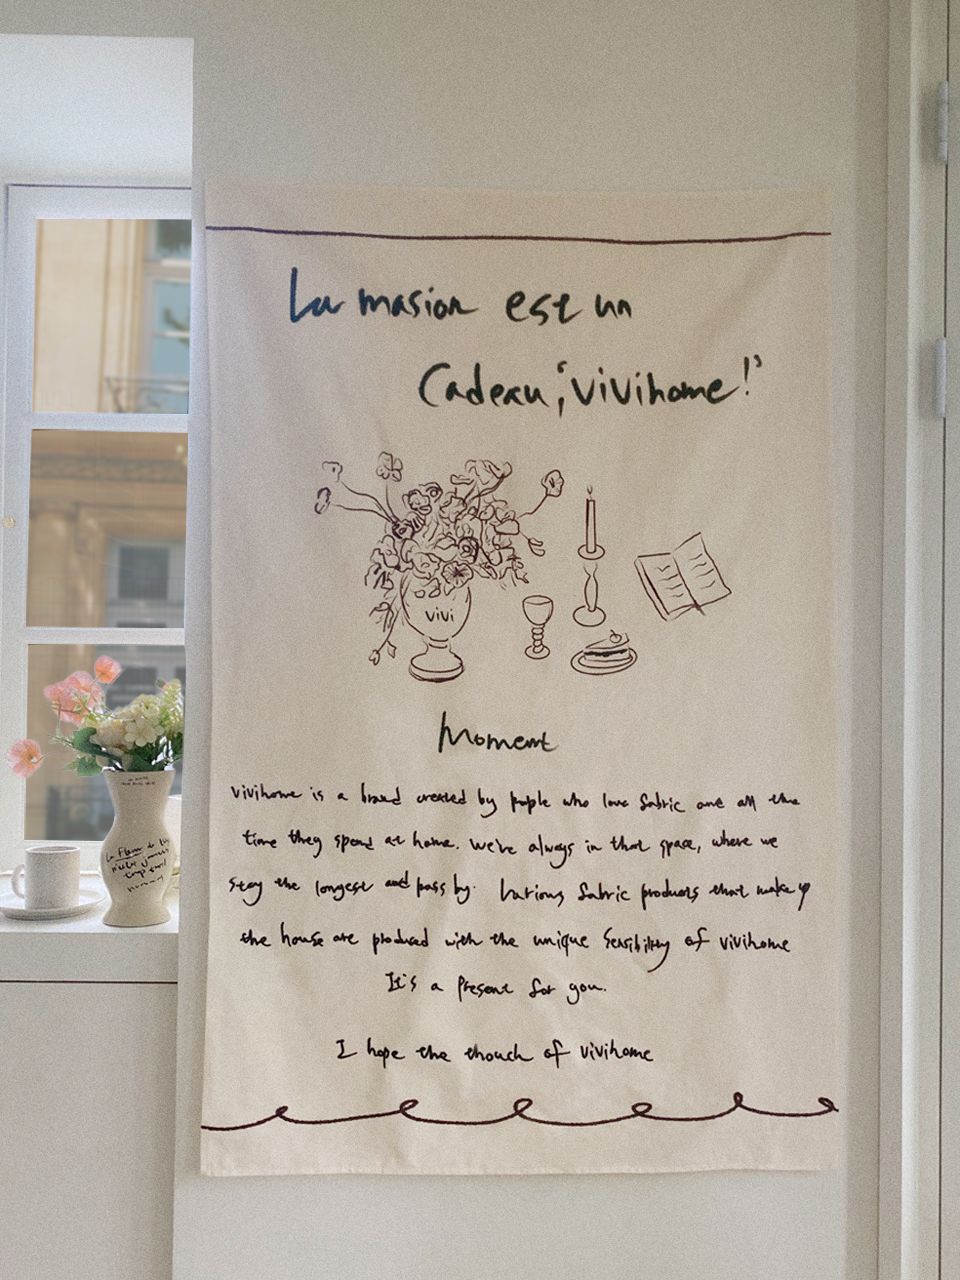 La masion est un
Cadeau, 'vivihome!'
vivi
Moment
vivihome is a brand created by people who love fabric and all the
time they spend at home. We're always in that space, where we
stay the longest and pass by. Various fabric products that make up
the house are produced with the unique sensibility of vivihome
It's a present for you.
I hope the thouch of vivihome
La Fleur